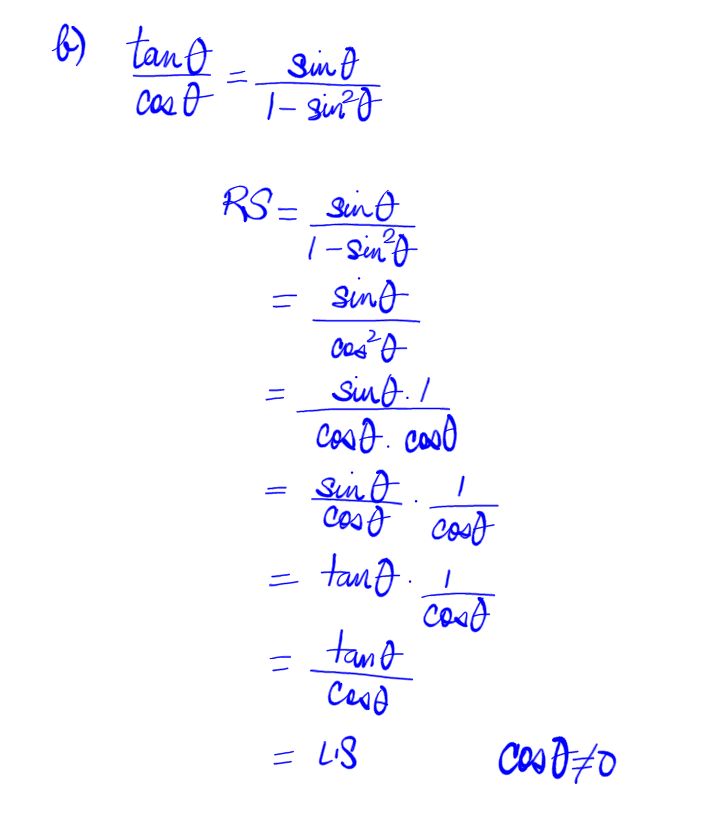 b) tanθ/cosθ = sinθ/(1 - sin²θ)
RS = sinθ/(1 - sin²θ)
= sinθ/cos²θ
= (sinθ · 1)/(cosθ · cosθ)
= sinθ/cosθ · 1/cosθ
= tanθ · 1/cosθ
= tanθ/cosθ
= LS cosθ ≠ 0